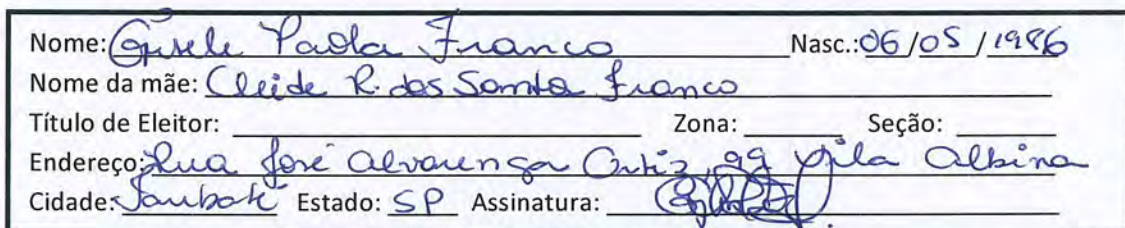 Nome: Gisele Paola Franco Nasc.: 06/05/1986
Nome da mãe: Cleide R. dos Santos Franco
Título de Eleitor: Zona: Seção:
Endereço: Rua José Alvarenga Ortiz, 99 Vila Albina
Cidade: Taubaté Estado: SP Assinatura: